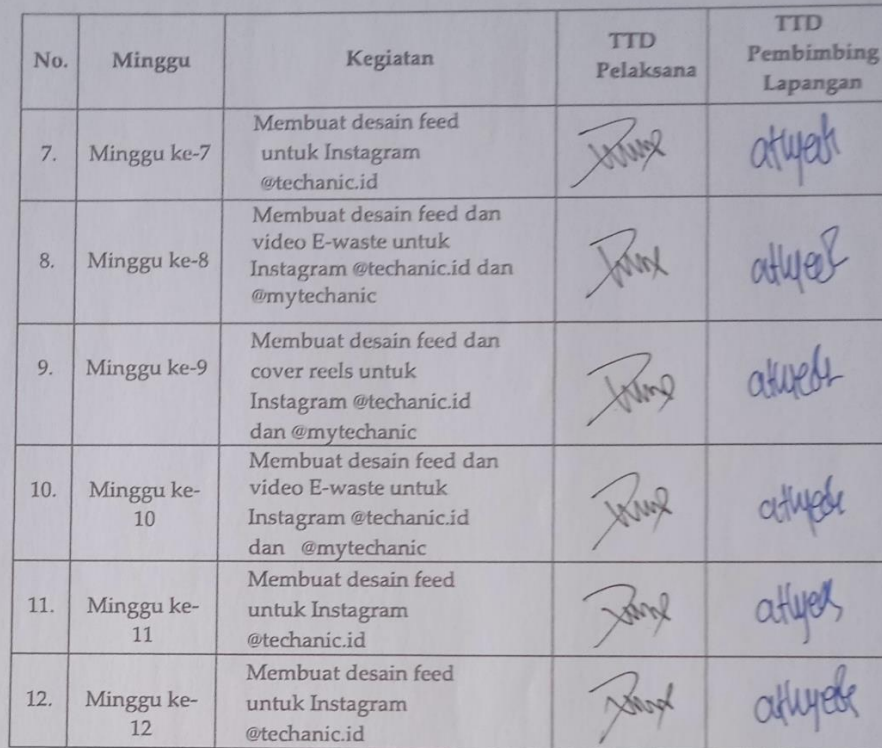 No.
Minggu
Kegiatan
TTD
Pelaksana
TTD
Pembimbing
Lapangan
7.
Minggu ke-7
Membuat desain feed
untuk Instagram
@techanic.id
8.
Minggu ke-8
Membuat desain feed dan
video E-waste untuk
Instagram @techanic.id dan
@mytechanic
9.
Minggu ke-9
Membuat desain feed dan
cover reels untuk
Instagram @techanic.id
dan @mytechanic
10.
Minggu ke-
10
Membuat desain feed dan
video E-waste untuk
Instagram @techanic.id
dan @mytechanic
11.
Minggu ke-
11
Membuat desain feed
untuk Instagram
@techanic.id
12.
Minggu ke-
12
Membuat desain feed
untuk Instagram
@techanic.id